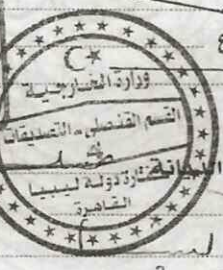 وزارة الخارجية
القسم القنصلي - التصديقات
سفارة دولة ليبيا
القاهرة